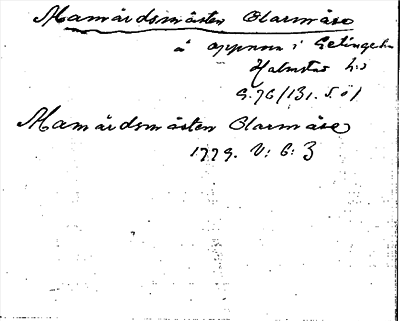 Mamårdsmåsten Olarmåse
å oppnum i Getinge sn
Halmstad h:d
G. 76/131. 5. 01
Mamårdsmåsten Olarmåse
1779. V: 6: 3